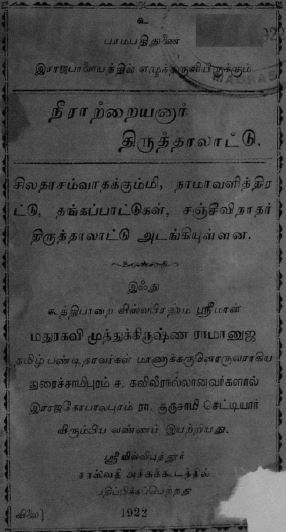 உ
இராஜபாளயத்தில் எழுந்தருளியிருக்கும்
நீராற்றையனார்
திருத்தாலாட்டு.
சிலதாசம்வாதக்கும்மி, நாமாவளித்திர
ட்டு, தங்கப்பாட்டுகள், சஞ்சீவிநாதர்
திருத்தாலாட்டு அடங்கியுள்ளன.
இஃது
ஸ்ரீமான்
மதுரகவி முத்துக்கிருஷ்ண ராமானுஜ
துரைச்சாமிபுரம் ச.
இராஜகோபாலபுரம் ரா. குருசாமி செட்டியார்
விரும்பிய வண்ணம் இயற்றியது.
ஸ்ரீவில்லிபுத்தூர்
சரஸ்வதி அச்சுக்கூடத்தில்
பதிப்பிக்கப்பெற்றது
விலை] 1922